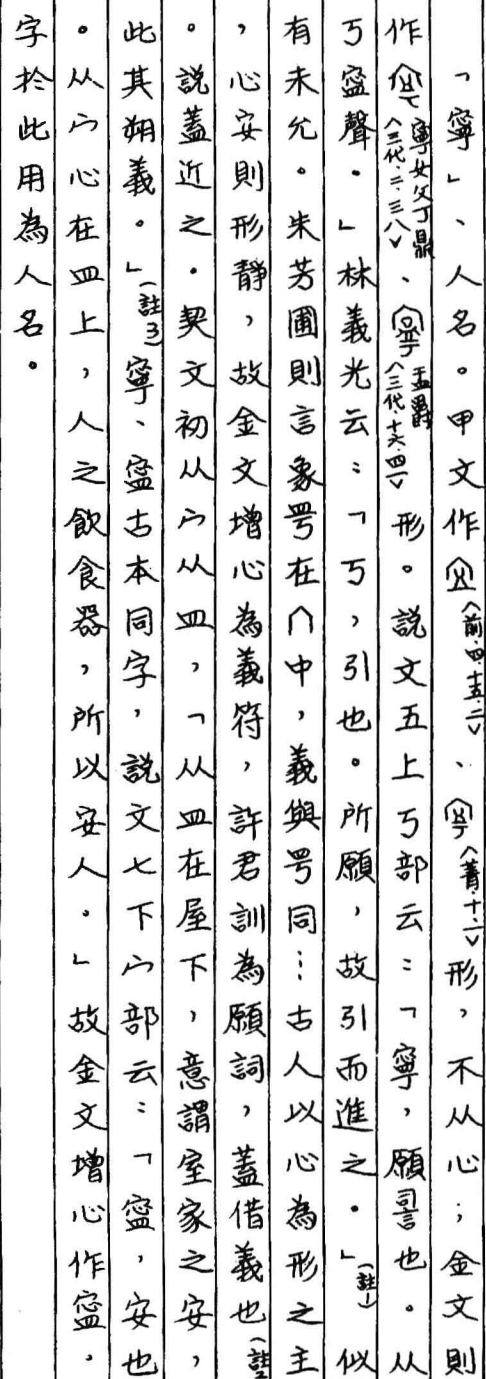 「寧」、人名。甲文作〈前.四.十五.二〉、〈菁.十.二〉形，不从心；金文則
作寧女父丁鼎〈三代.二.三八〉、盂爵〈三代.十六.四一〉形。說文五上丂部云：「寧，願䛐也。从
丂寍聲。」林義光云：「丂，引也。所願，故引而進之。」（註1）似
有未允。朱芳圃則言象甹在冂中，義與甹同…古人以心為形之主
，心安則形靜，故金文增心為義符，許君訓為願詞，蓋借義也（註2）
。說蓋近之。契文初从宀从皿，「从皿在屋下，意謂室家之安，
此其朔義。」（註3）寧、寍古本同字，說文七下宀部云：「寍，安也
。从宀心在皿上，人之飲食器，所以安人。」故金文增心作寍。
字於此用為人名。